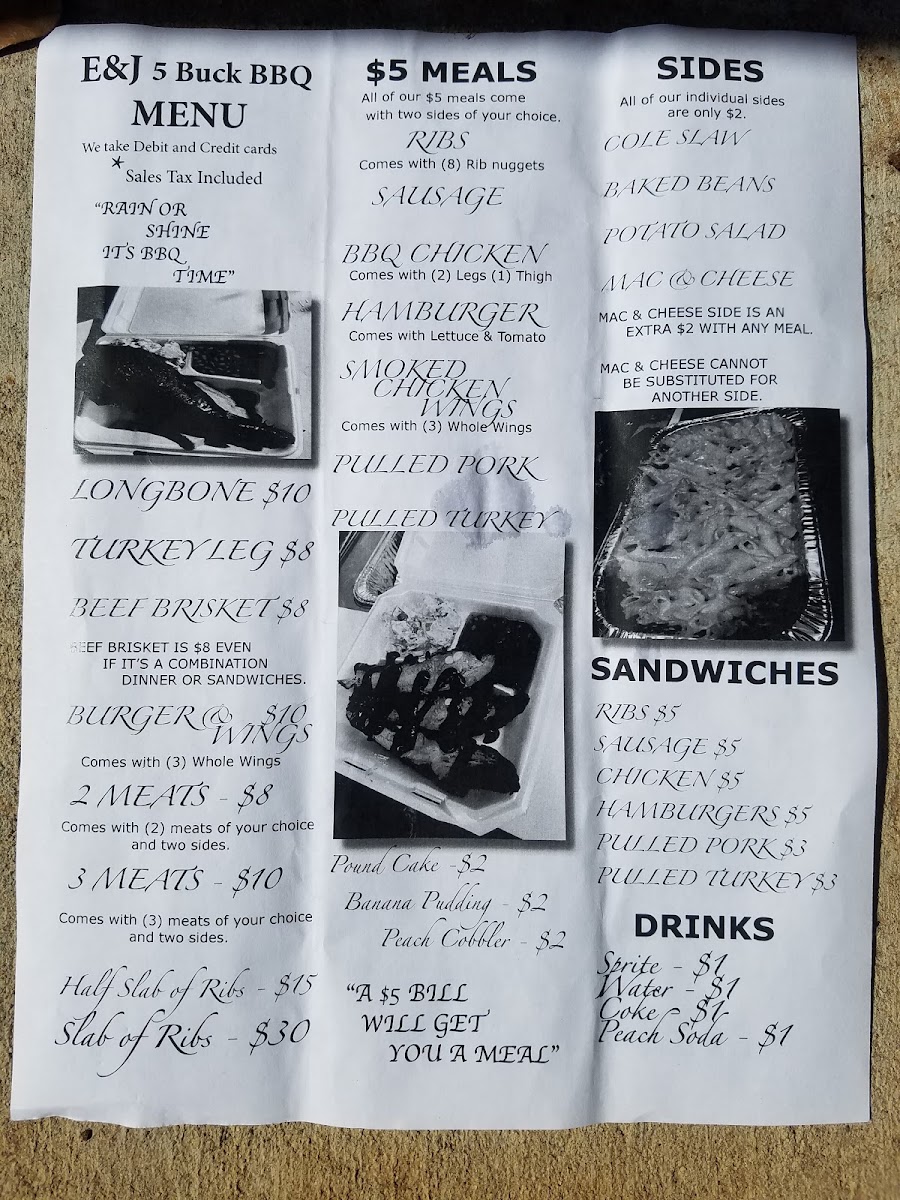 E&J 5 Buck BBQ
MENU
We take Debit and Credit cards
* Sales Tax Included
"RAIN OR
SHINE
IT'S BBQ
TIME"
LONGBONE $10
TURKEY LEG $8
BEEF BRISKET $8
BEEF BRISKET IS $8 EVEN
IF IT'S A COMBINATION
DINNER OR SANDWICHES.
BURGER @ $10
WINGS
Comes with (3) Whole Wings
2 MEATS - $8
Comes with (2) meats of your choice
and two sides.
3 MEATS - $10
Comes with (3) meats of your choice
and two sides.
Half Slab of Ribs - $15
Slab of Ribs - $30
$5 MEALS
All of our $5 meals come
with two sides of your choice.
RIBS
Comes with (8) Rib nuggets
SAUSAGE
BBQ CHICKEN
Comes with (2) Legs (1) Thigh
HAMBURGER
Comes with Lettuce & Tomato
SMOKED
CHICKEN
WINGS
Comes with (3) Whole Wings
PULLED PORK
PULLED TURKEY
Pound Cake -$2
Banana Pudding - $2
Peach Cobbler - $2
"A $5 BILL
WILL GET
YOU A MEAL"
SIDES
All of our individual sides
are only $2.
COLE SLAW
BAKED BEANS
POTATO SALAD
MAC & CHEESE
MAC & CHEESE SIDE IS AN
EXTRA $2 WITH ANY MEAL.
MAC & CHEESE CANNOT
BE SUBSTITUTED FOR
ANOTHER SIDE.
SANDWICHES
RIBS $5
SAUSAGE $5
CHICKEN $5
HAMBURGERS $5
PULLED PORK $3
PULLED TURKEY $3
DRINKS
Sprite - $1
Water - $1
Coke - $1
Peach Soda - $1